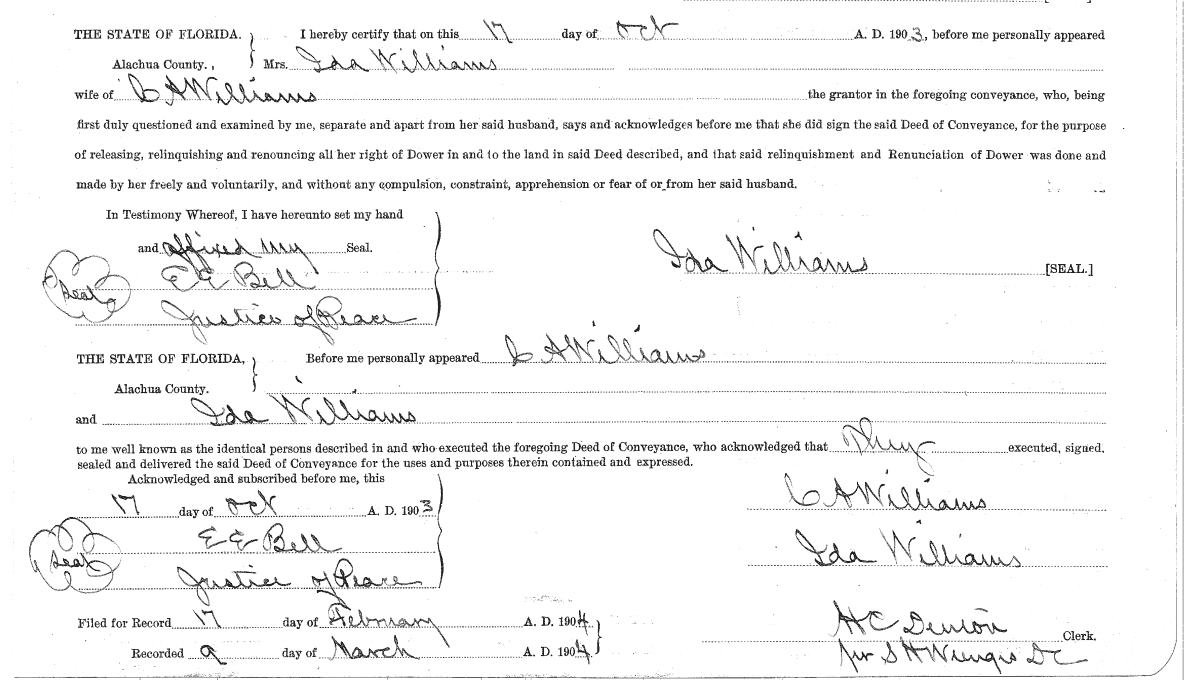 THE STATE OF FLORIDA. I hereby certify that on this 17 day of Oct A. D. 1903, before me personally appeared
Alachua County. Mrs. Ida Williams
wife of C A Williams the grantor in the foregoing conveyance, who, being
first duly questioned and examined by me, separate and apart from her said husband, says and acknowledges before me that she did sign the said Deed of Conveyance, for the purpose
of releasing, relinquishing and renouncing all her right of Dower in and to the land in said Deed described, and that said relinquishment and Renunciation of Dower was done and
made by her freely and voluntarily, and without any compulsion, constraint, apprehension or fear of or from her said husband.
In Testimony Whereof, I have hereunto set my hand
and affixed my Seal.
Seal E E Bell
Ida Williams [SEAL.]
Justice of Peace
THE STATE OF FLORIDA, Before me personally appeared C A Williams
Alachua County.
and Ida Williams
to me well known as the identical persons described in and who executed the foregoing Deed of Conveyance, who acknowledged that They executed, signed,
sealed and delivered the said Deed of Conveyance for the uses and purposes therein contained and expressed.
Acknowledged and subscribed before me, this
17 day of Oct A. D. 1903
C A Williams
Seal E E Bell
Ida Williams
Justice of Peace
Filed for Record 17 day of February A. D. 1904
H C Denton Clerk.
Recorded 9 day of March A. D. 1904
per S H D C